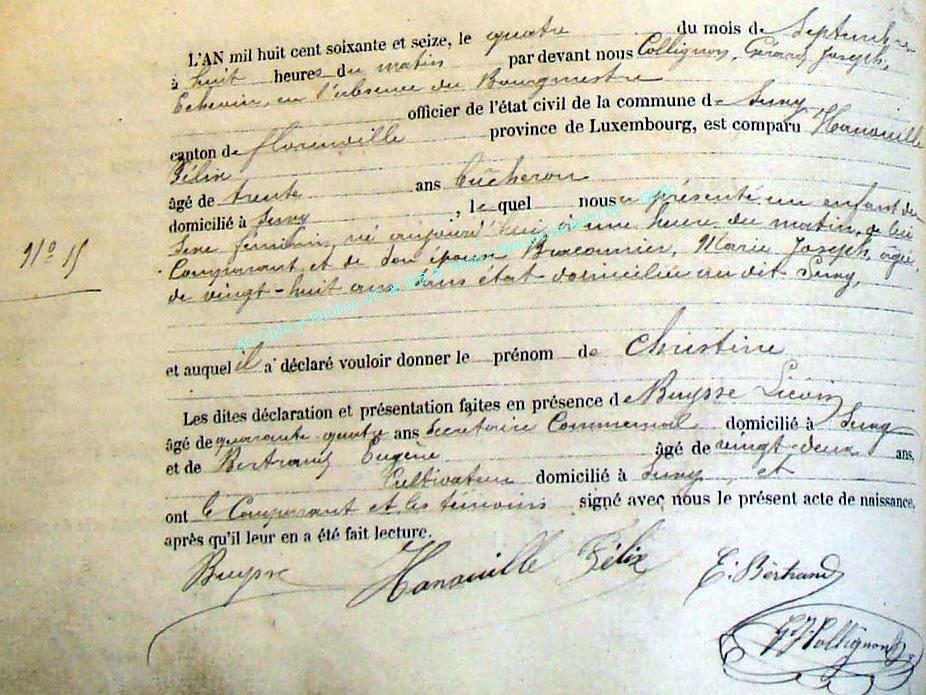 L'AN mil huit cent soixante et seize, le quatre du mois de Septembre
à huit heures du matin par devant nous Collignon, Gérard Joseph,
Echevin, en l'absence du Bourgmestre
officier de l'état civil de la commune de Suny
canton de florenville province de Luxembourg, est comparu Hanouille
Félix
âgé de trente ans bûcheron
domicilié à Suny, lequel nous a présenté un enfant du
Sexe féminin, né aujourd'hui à une heure du matin, de lui
Comparant et de son épouse Braconnier, Marie Joseph, âgée,
de vingt-huit ans, sans état domiciliée au dit Suny,
et auquel il a déclaré vouloir donner le prénom de Christine
Les dites déclaration et présentation faites en présence de Buysse
âgé de quarante quatre ans Secrétaire Communal domicilié à Suny
et de Bertrand Eugène âgé de vingt-deux ans,
Cultivateur domicilié à Suny, et
ont le Comparant et les témoins signé avec nous le présent acte de naissance,
après qu'il leur en a été fait lecture.
N° 15
Buysse Hanouille Félix E. Bertrand
Collignon